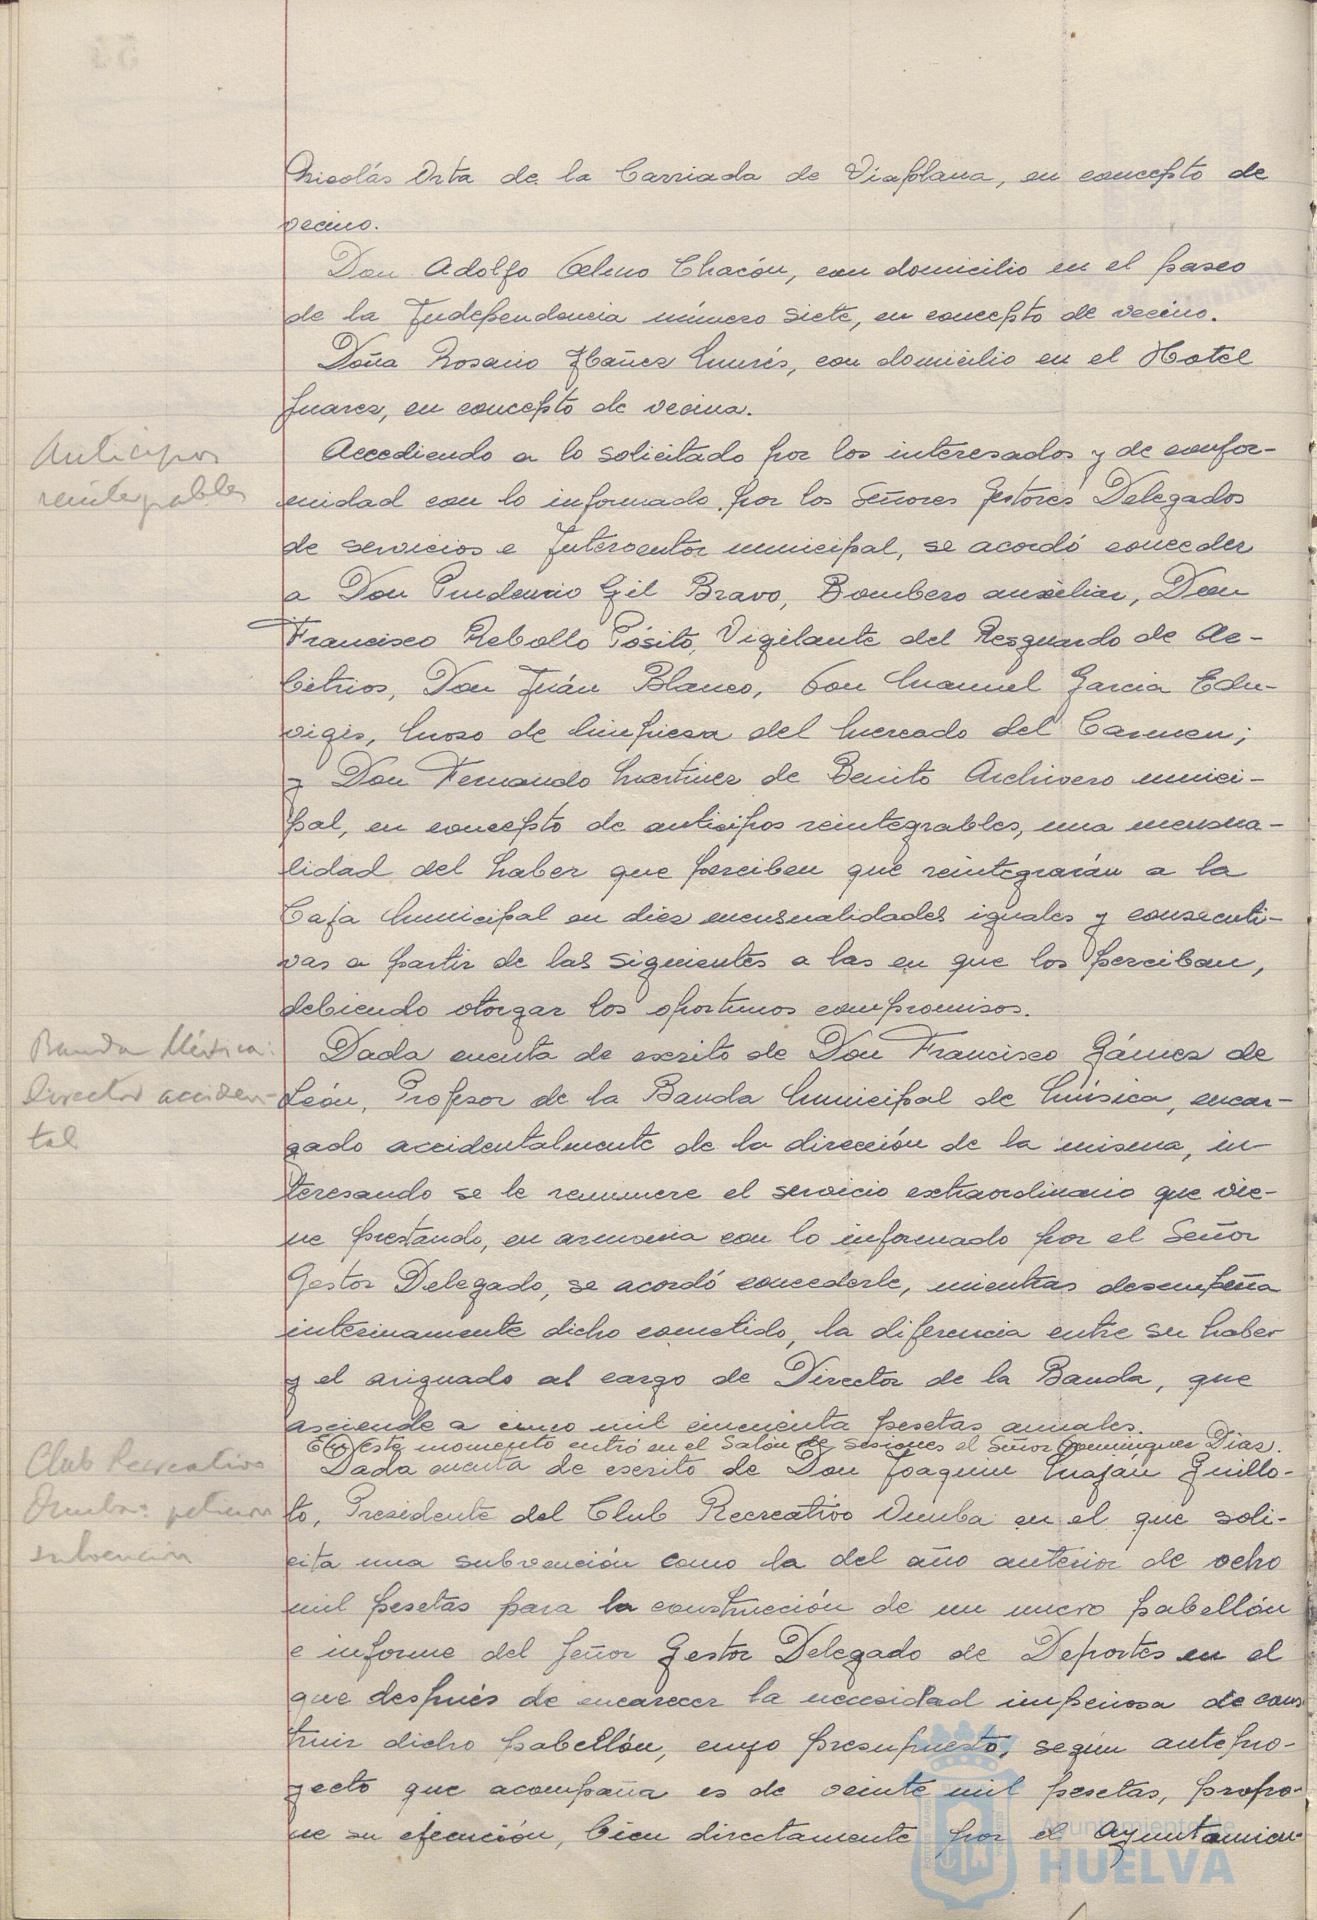 Nicolás Orta de la Barriada de Viaplana, en concepto de
vecino.
Don Adolfo Celmo Chacón, con domicilio en el paseo
de la Independencia número siete, en concepto de vecino.
Doña Rosario Ybañez, con domicilio en el Hotel
Juarez, en concepto de vecina.
Anticipos
reintegrables
Accediendo a lo solicitado por los interesados y de confor-
midad con lo informado por los Señores Gestores Delegados
de servicios e Interventor municipal, se acordó conceder
a Don Prudencio Gil Bravo, Bombero auxiliar, Don
Francisco Rebollo Pósito, Vigilante del Resguardo de Ar-
bitrios, Don Juán Blanco, Don Manuel Garcia Edu-
vigis, Moso de limpiesa del Mercado del Carmen;
y Don Fernando Martinez de Benito Archivero munici-
pal, en concepto de anticipos reintegrables, una mensua-
lidad del haber que perciben que reintegrarán a la
Caja Municipal en diez mensualidades iguales y consecuti-
vas a partir de las siguientes a las en que los perciban,
debiendo otorgar los oportunos compromisos.
Banda Música:
Director acciden-
tal
Dada cuenta de escrito de Don Francisco Gámez de
León, Profesor de la Banda Municipal de Música, encar-
gado accidentalmente de la dirección de la misma, in-
teresando se le remunere el servicio extraordinario que vie-
ne prestando, en armonia con lo informado por el Señor
Gestor Delegado, se acordó concederle, mientras desempeña
interinamente dicho cometido, la diferencia entre su haber
y el asignado al cargo de Director de la Banda, que
asciende a cinco mil cincuenta pesetas anuales.
En este momento entró en el Salón de sesiones el Señor Dominguez Dias.
Club Recreativo
Onuba: peticion
subvencion
Dada cuenta de escrito de Don Joaquin Guillo-
to, Presidente del Club Recreativo Onuba en el que soli-
cita una subvención como la del año anterior de ocho
mil pesetas para la construcción de un nuevo pabellón
e informe del Señor Gestor Delegado de Deportes en el
que después de encarecer la necesidad imperiosa de cons
truir dicho pabellón, cuyo presupuesto, según antepro-
yecto que acompaña es de veinte mil pesetas, propo-
ne su ejecución, bien directamente por el Ayuntamien-
Ayuntamiento de
HUELVA